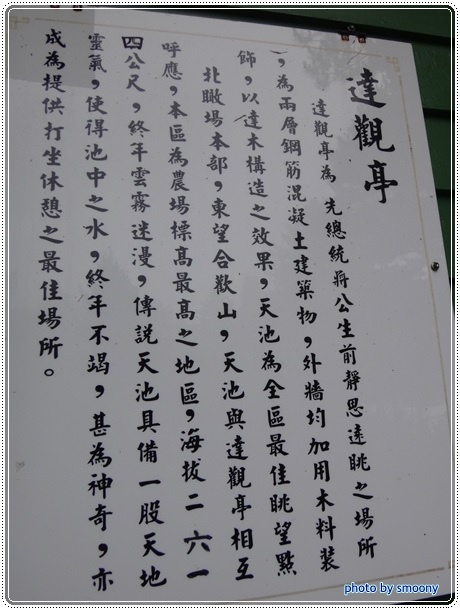 達觀亭
達觀亭為 先總統蔣公生前靜思遠眺之場所
，為兩層鋼筋混凝土建築物，外牆均加用木料裝
飾，以達木構造之效果，天池為全區最佳眺望點
北瞰場本部，東望合歡山，天池與達觀亭相互
呼應，本區為農場標高最高之地區，海拔二六一
四公尺，終年雲霧迷漫，傳說天池具備一股天地
靈氣，使得池中之水，終年不竭，甚為神奇，亦
成為提供打坐休憩之最佳場所。
photo by smoony